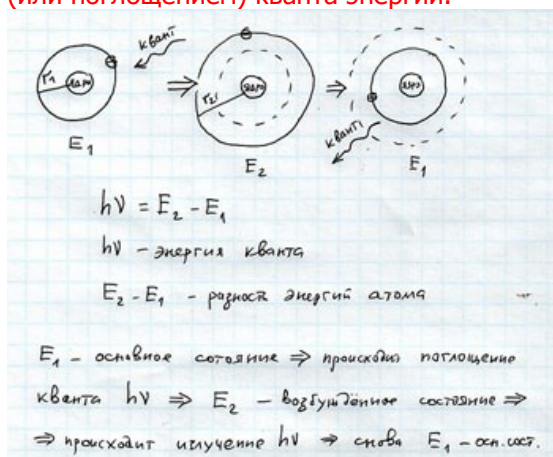 (или поглощением) кванта энергии.
квант
r₁ ядро
E₁
⇒
r₂ ядро
E₂
⇒
ядро
квант
E₁
hν = E₂ - E₁
hν - энергия кванта
E₂ - E₁ - разность энергий атома
E₁ - основное сотояние ⇒ происходит поглощение
кванта hν ⇒ E₂ - возбуждённое состояние ⇒
⇒ происходит излучение hν ⇒ снова E₁ - осн. сост.